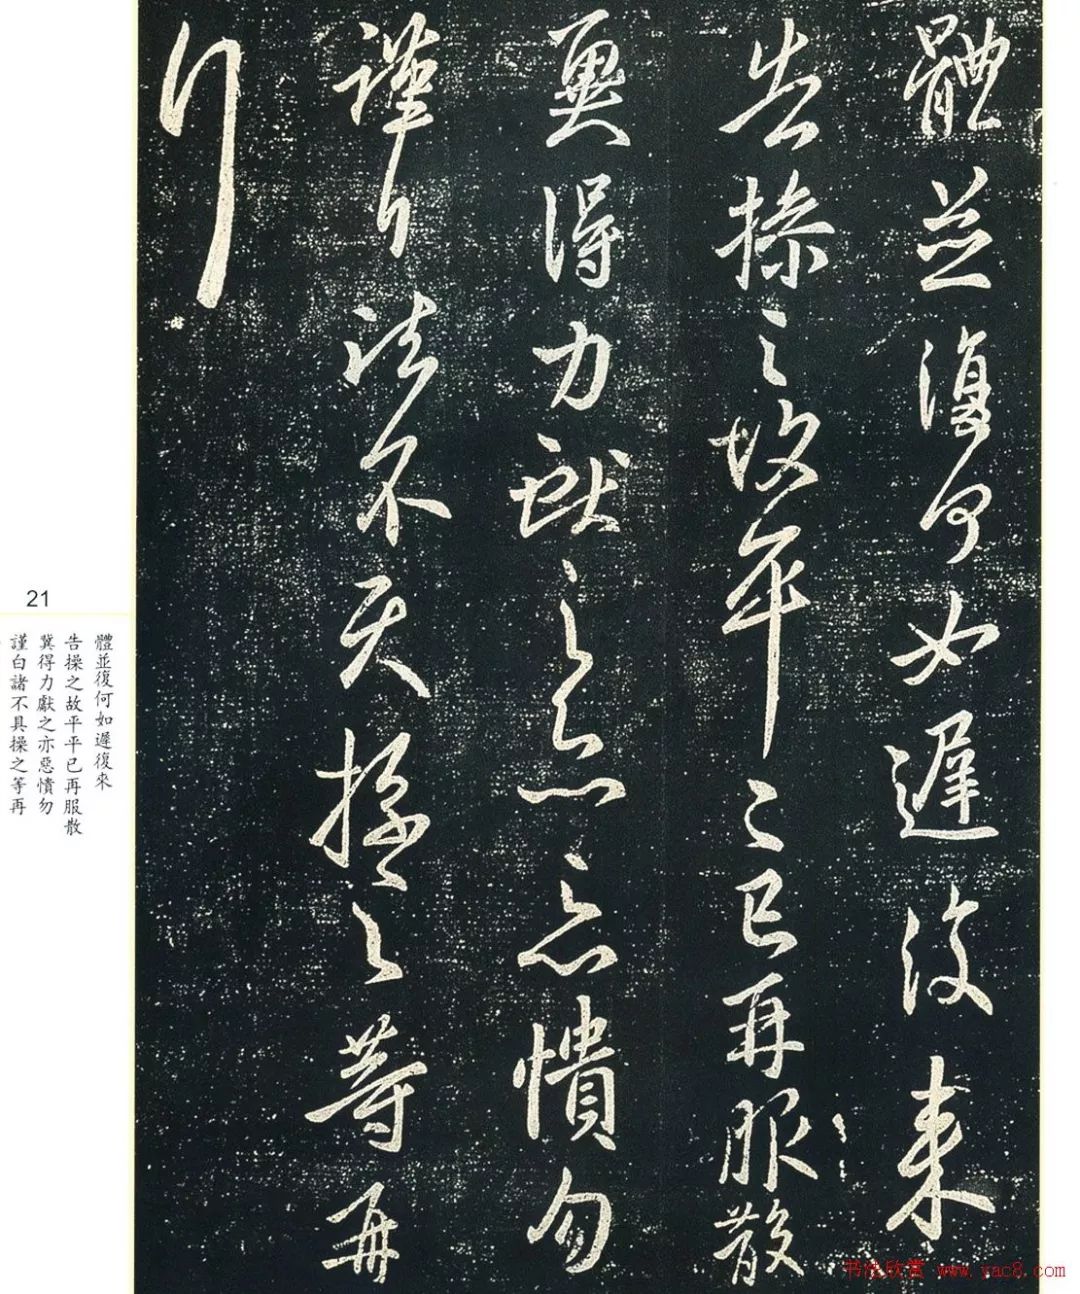 體並復何如遲復來
告操之故平平已再服散
冀得力獻之亦惡憒勿
謹白諸不具操之等再
行
21
體並復何如遲復來
告操之故平平已再服散
冀得力獻之亦惡憒勿
謹白諸不具操之等再
书法欣赏 www.yac8.com